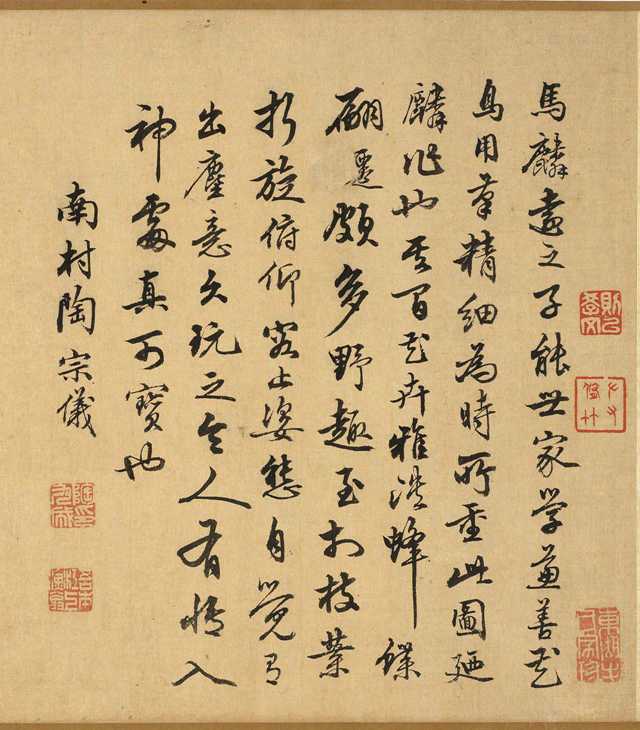 馬麟遠之子能世家学兼善花
鳥用筆精細為時所重此圖廼
麟作也其間花卉雅淡蜂蝶
頗多野趣至於枝葉
折旋俯仰容止姿態自覺有
出塵意久玩之令人有情入
神處真可寶也
南村陶宗儀